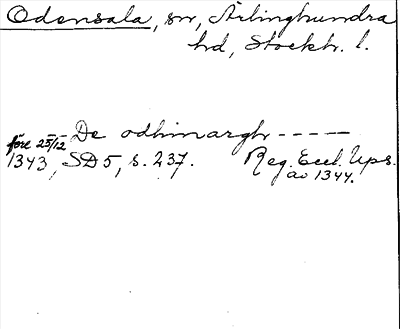 Odensala, sn, Ärlinghundra
hd, Stockh. l.
De odhinargh -----
före 25/12
1343, SD 5, s. 237. Reg. Eccl. Ups.
av 1344.